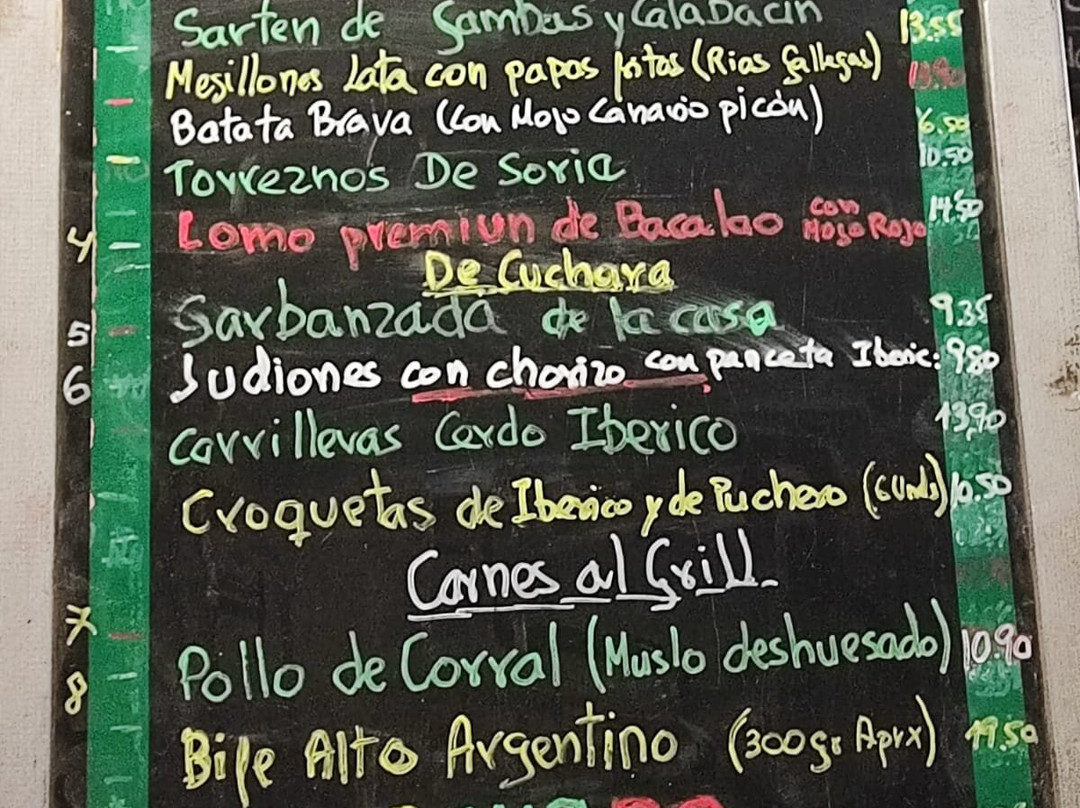 Sarten de Gambas y Calabacin 13.55
Mejillones Lata con papas fritas (Rias Gallegas)
Batata Brava (Con Mojo Canario picón) 6.50
Torreznos De Soria 10.50
4 Lomo premiun de Bacalao con Mojo Rojo 14.50
De Cuchara
5 Garbanzada de la casa 9.35
6 Judiones con chorizo con panceta Iberic: 9.80
Carrilleras Cerdo Iberico 13,90
Croquetas de Iberico y de Puchero (6 Unds) 10.50
Carnes al Grill
7 Pollo de Corral (Muslo deshuesado) 10.90
8 Bife Alto Argentino (300gr Aprx) 19.50